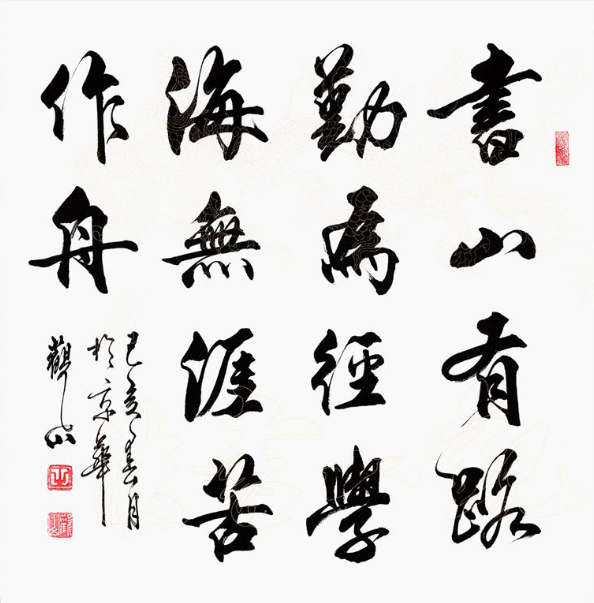 書山有路
勤為徑學
海無涯苦
作舟
己亥春月
於京華
觀山